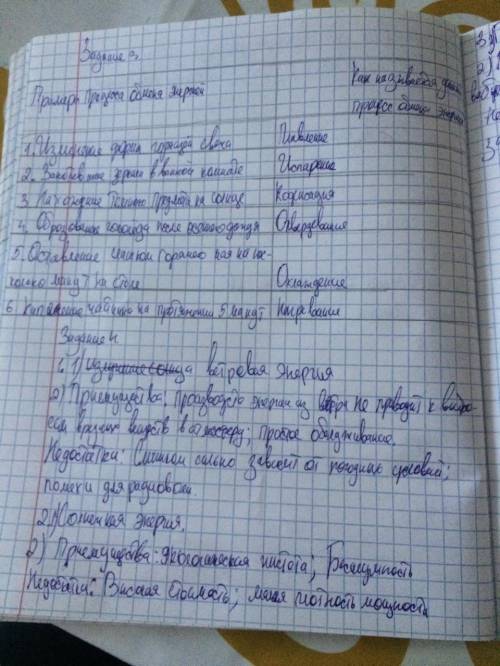 Задание 3.
Пример процесса обмена энергией
Как называется данный
процесс обмена энергии
1. Изменение формы горящей свечи Плавление
2. Запотевшие зеркала в ванной комнате Испарение
3. Нахождение тёмного предмета на солнце
4. Образование гололёда после дождя Отвердевание
5. Оставление чашки горячего чая на нес-
колько минут на столе Охлаждение
6. Кипячение чайника на протяжении 5 минут Нагревание
Задание 4.
1) ветровая энергия
2) Преимущества: производство энергии из ветра не приводит к выбро-
сам вредных веществ в атмосферу; простое обслуживание.
Недостатки: Слишком сильно зависит от погодных условий;
помехи для радиоволн.
2. Солнечная энергия.
2) Преимущества: экологическая чистота; Бесшумность
Недостатки: Высокая стоимость; малая плотность мощности